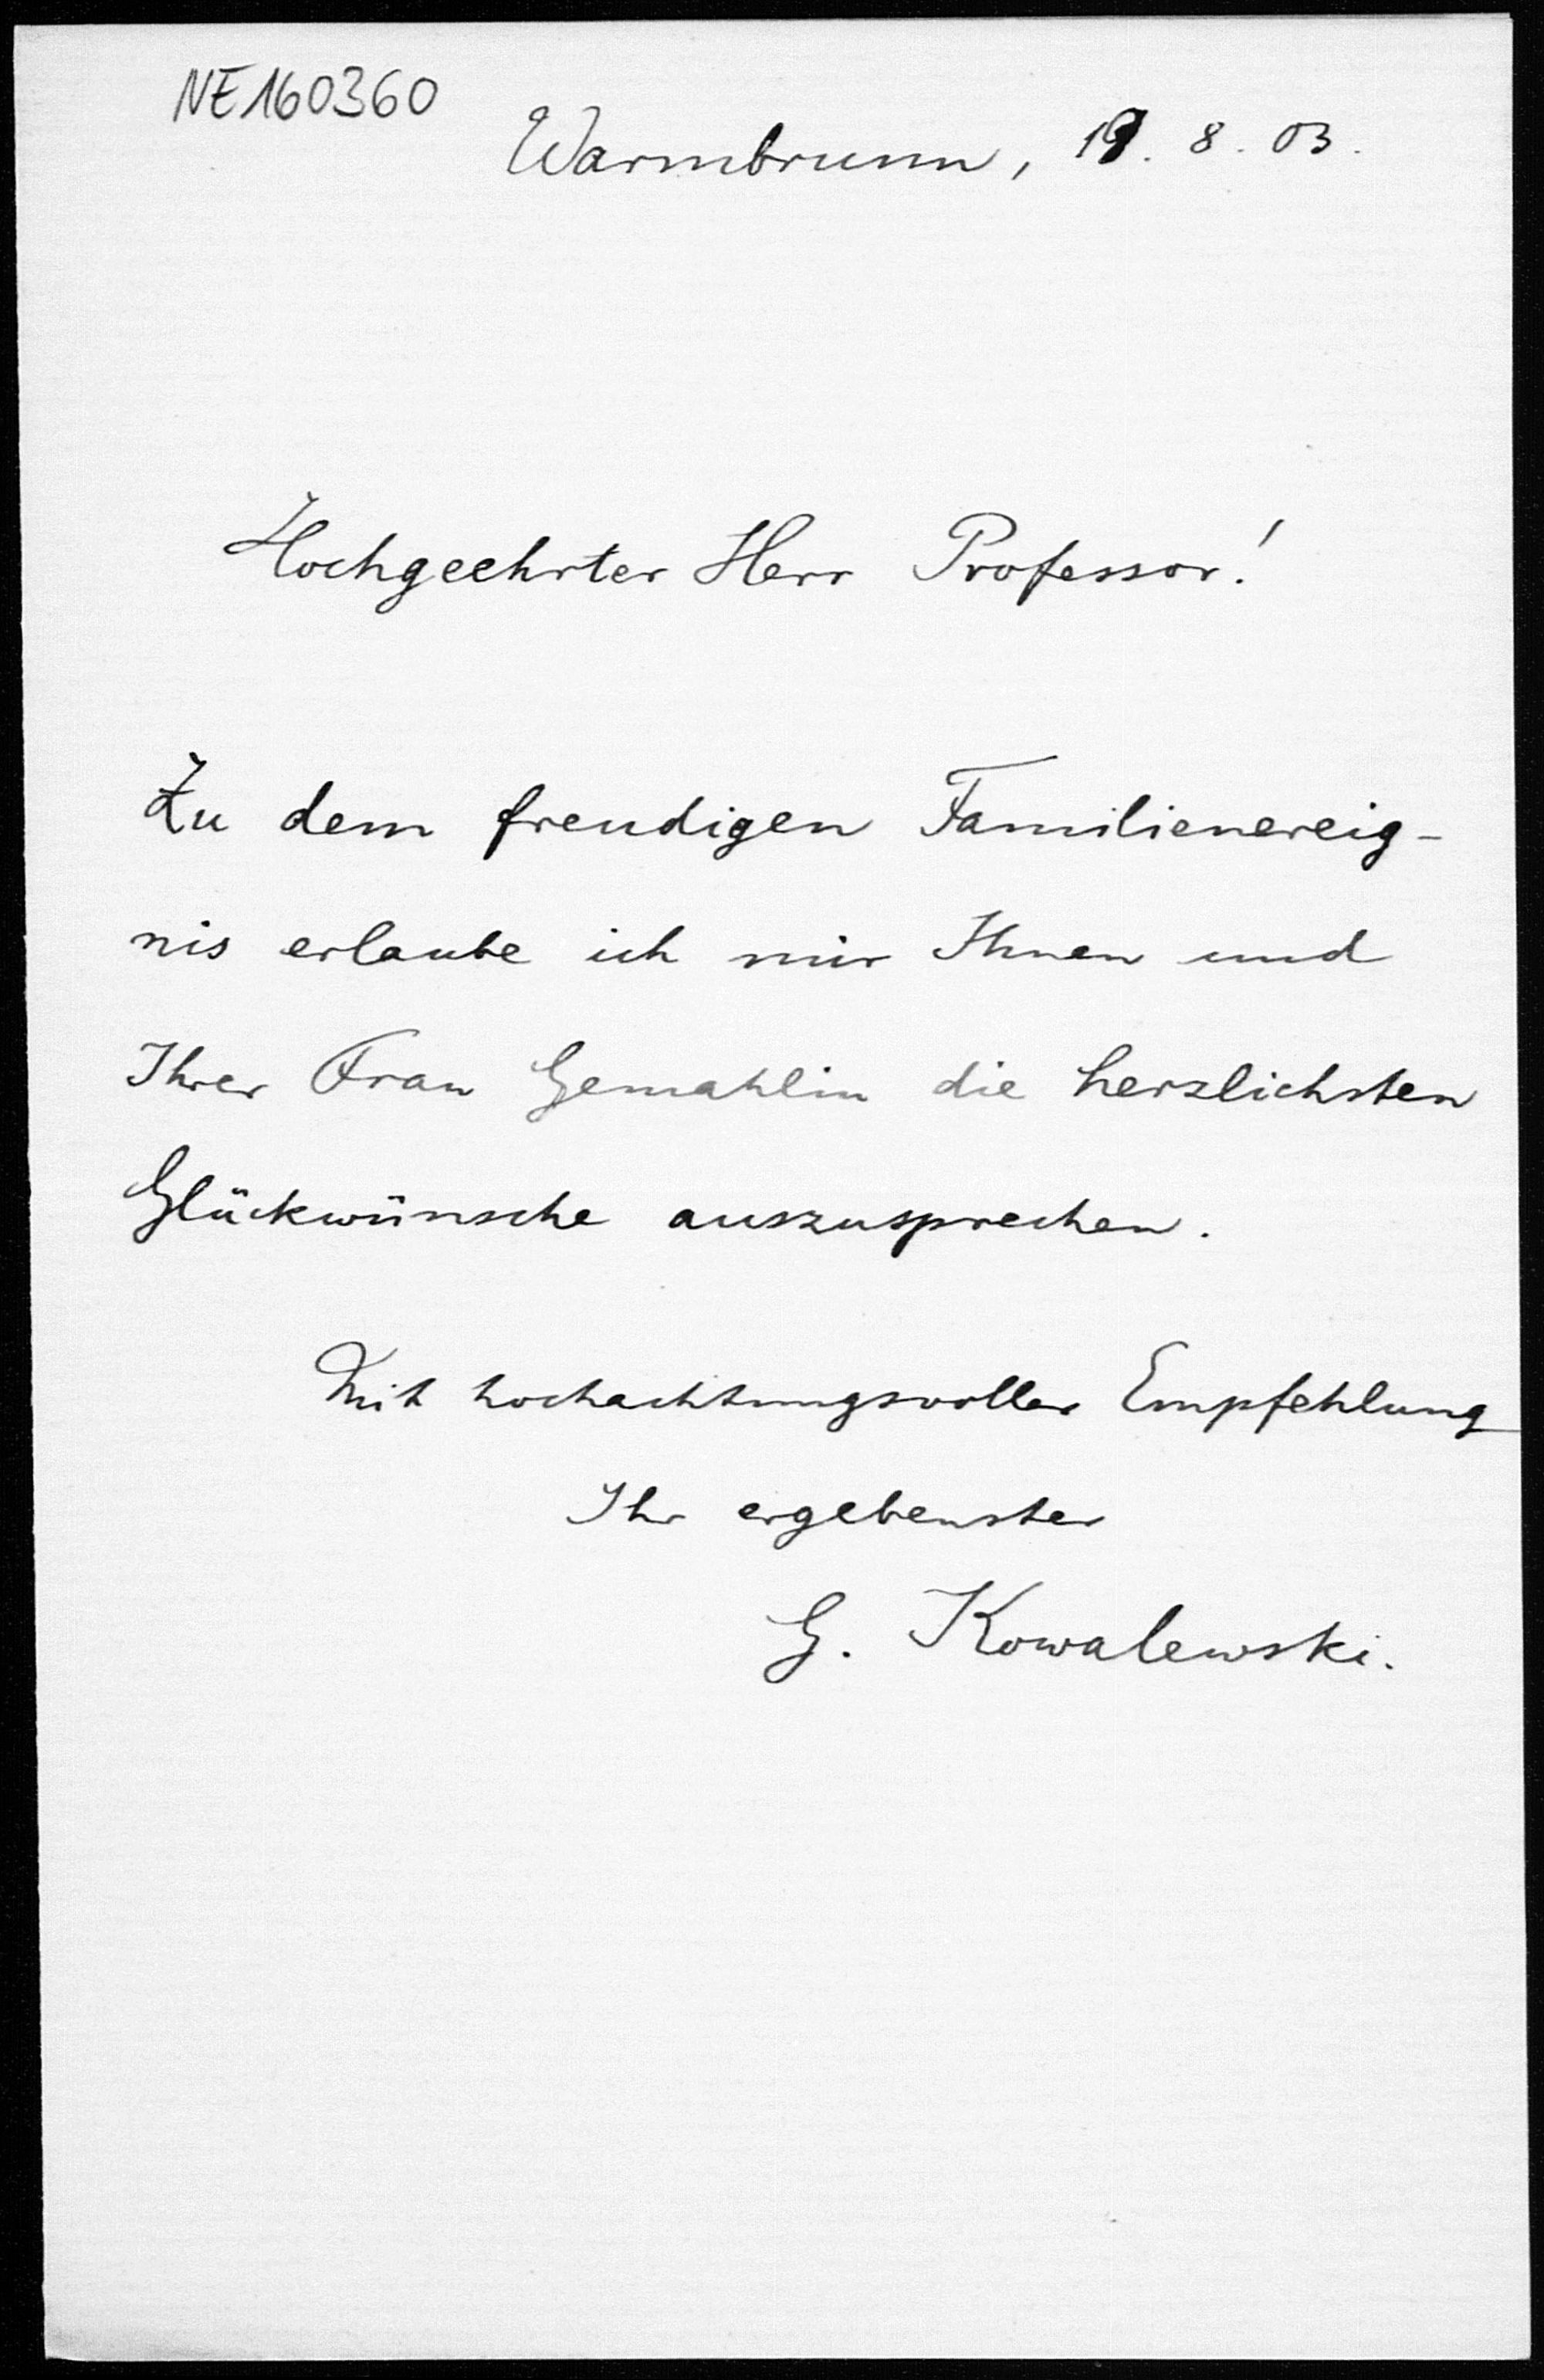 NE160360
Warmbrunn, 19. 8. 03.
Hochgeehrter Herr Professor!
Zu dem freudigen Familienereig-
nis erlaube ich mir Ihnen und
Ihrer Frau Gemahlin die herzlichsten
Glückwünsche auszusprechen.
Mit hochachtungsvoller Empfehlung
Ihr ergebenster
G. Kowalewski.